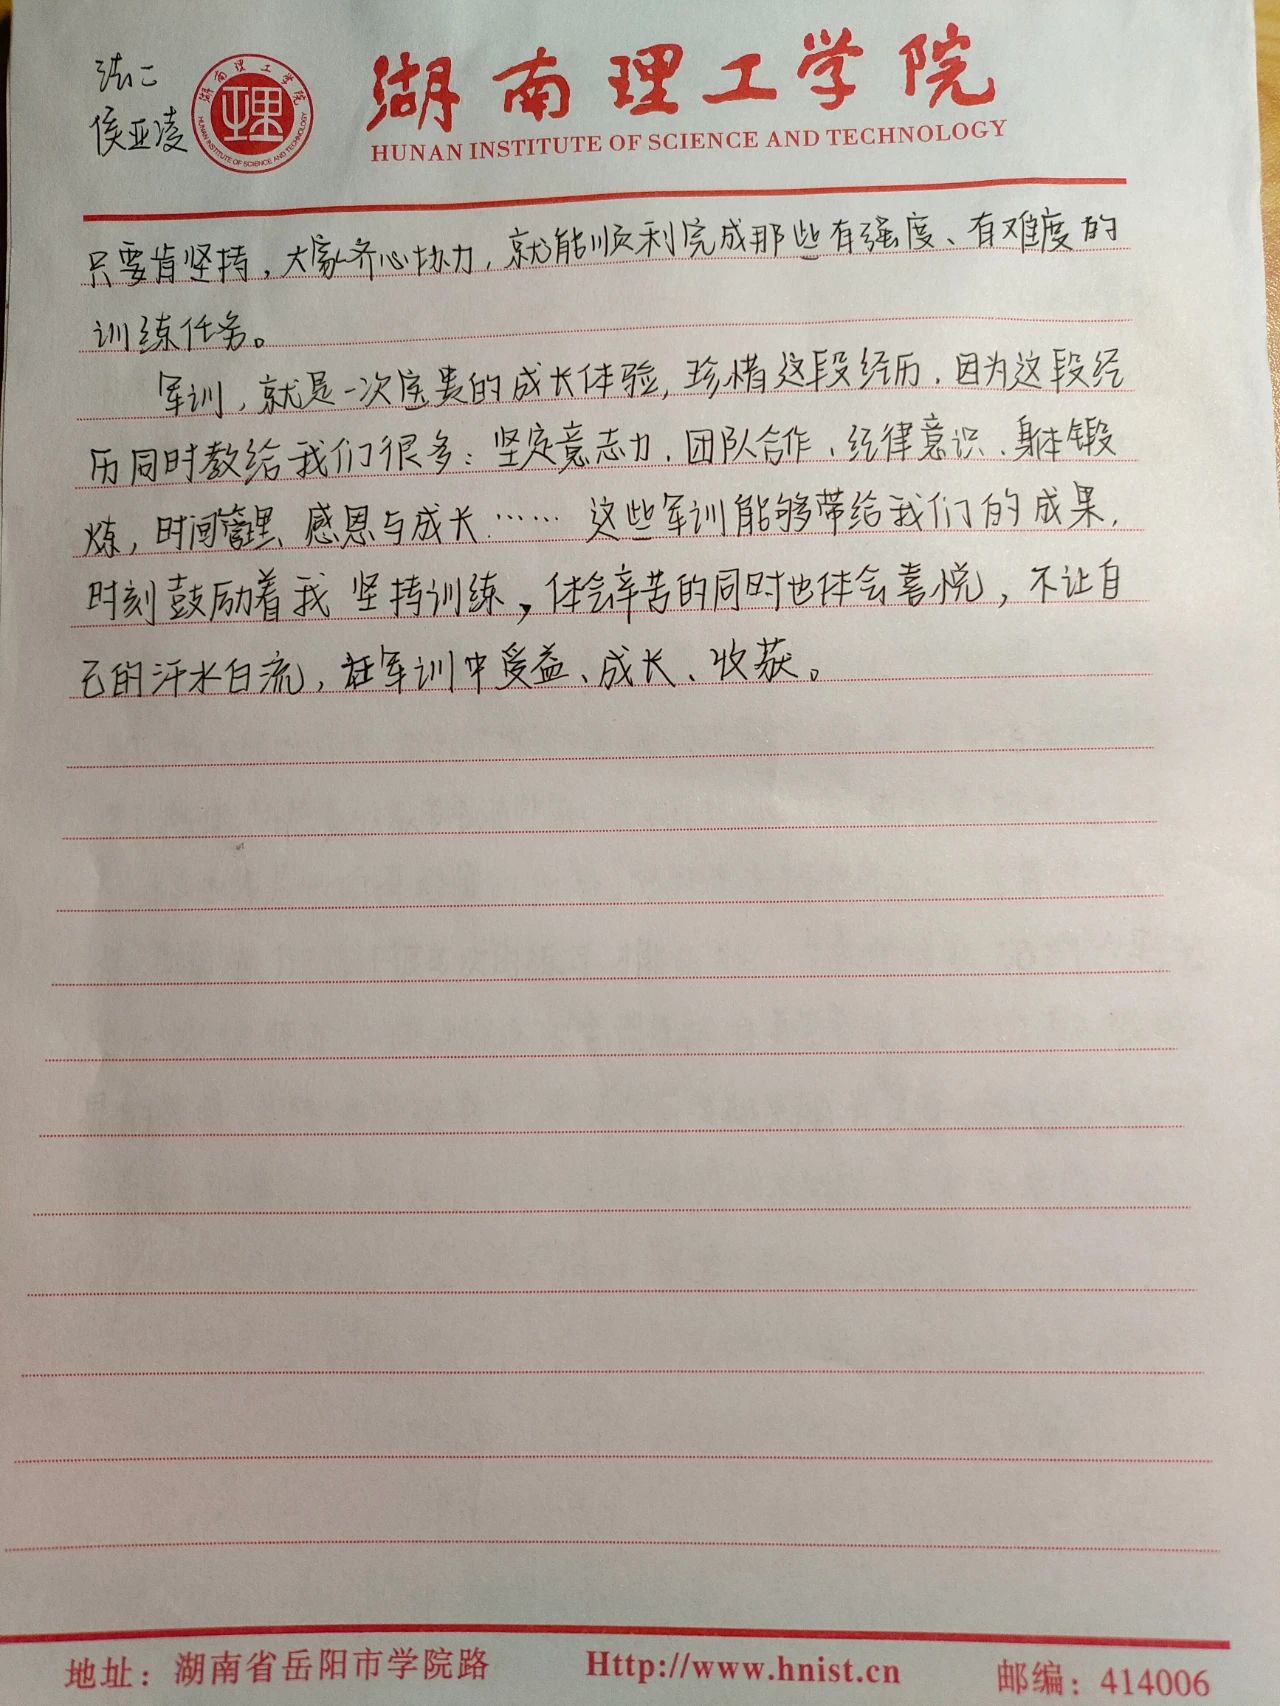 法二
侯亚凌
湖南理工学院
HUNAN INSTITUTE OF SCIENCE AND TECHNOLOGY
湖南理工学院
HUNAN INSTITUTE OF SCIENCE AND TECHNOLOGY
只要肯坚持，大家齐心协力，就能顺利完成那些有强度、有难度的
训练任务。
军训，就是一次宝贵的成长体验，珍惜这段经历，因为这段经
历同时教给我们很多：坚定意志力、团队合作、纪律意识、身体锻
炼，时间管理、感恩与成长……这些军训能够带给我们的成果，
时刻鼓励着我坚持训练，体会辛苦的同时也体会喜悦，不让自
己的汗水白流，在军训中受益、成长、收获。
地址：湖南省岳阳市学院路
Http://www.hnist.cn
邮编：414006